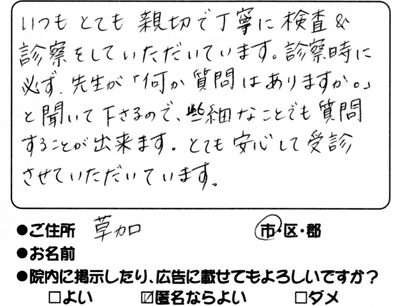 いつも とても 親切で丁寧に検査&
診察をしていただいています。診察時に
必ず、先生が「何か質問はありますか。」
と聞いて下さるので、些細なことでも質問
することが出来ます。とても安心して受診
させていただいています。
●ご住所 草加 市・区・郡
●お名前
●院内に掲示したり、広告に載せてもよろしいですか?
□よい ☑匿名ならよい □ダメ